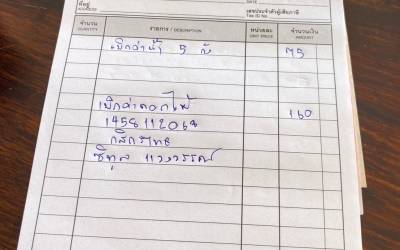 ที่อยู่
ADDRESS
DATE
เลขประจำตัวผู้เสียภาษี
TAX ID NO.
จำนวน รายการ / DESCRIPTION หน่วยละ จำนวนเงิน
QUANTITY UNIT PRICE AMOUNT
เบิกค่าน้ำ 5 ถัง 75
เบิกค่าดอกไม้ 160
1458112068
กสิกรไทย